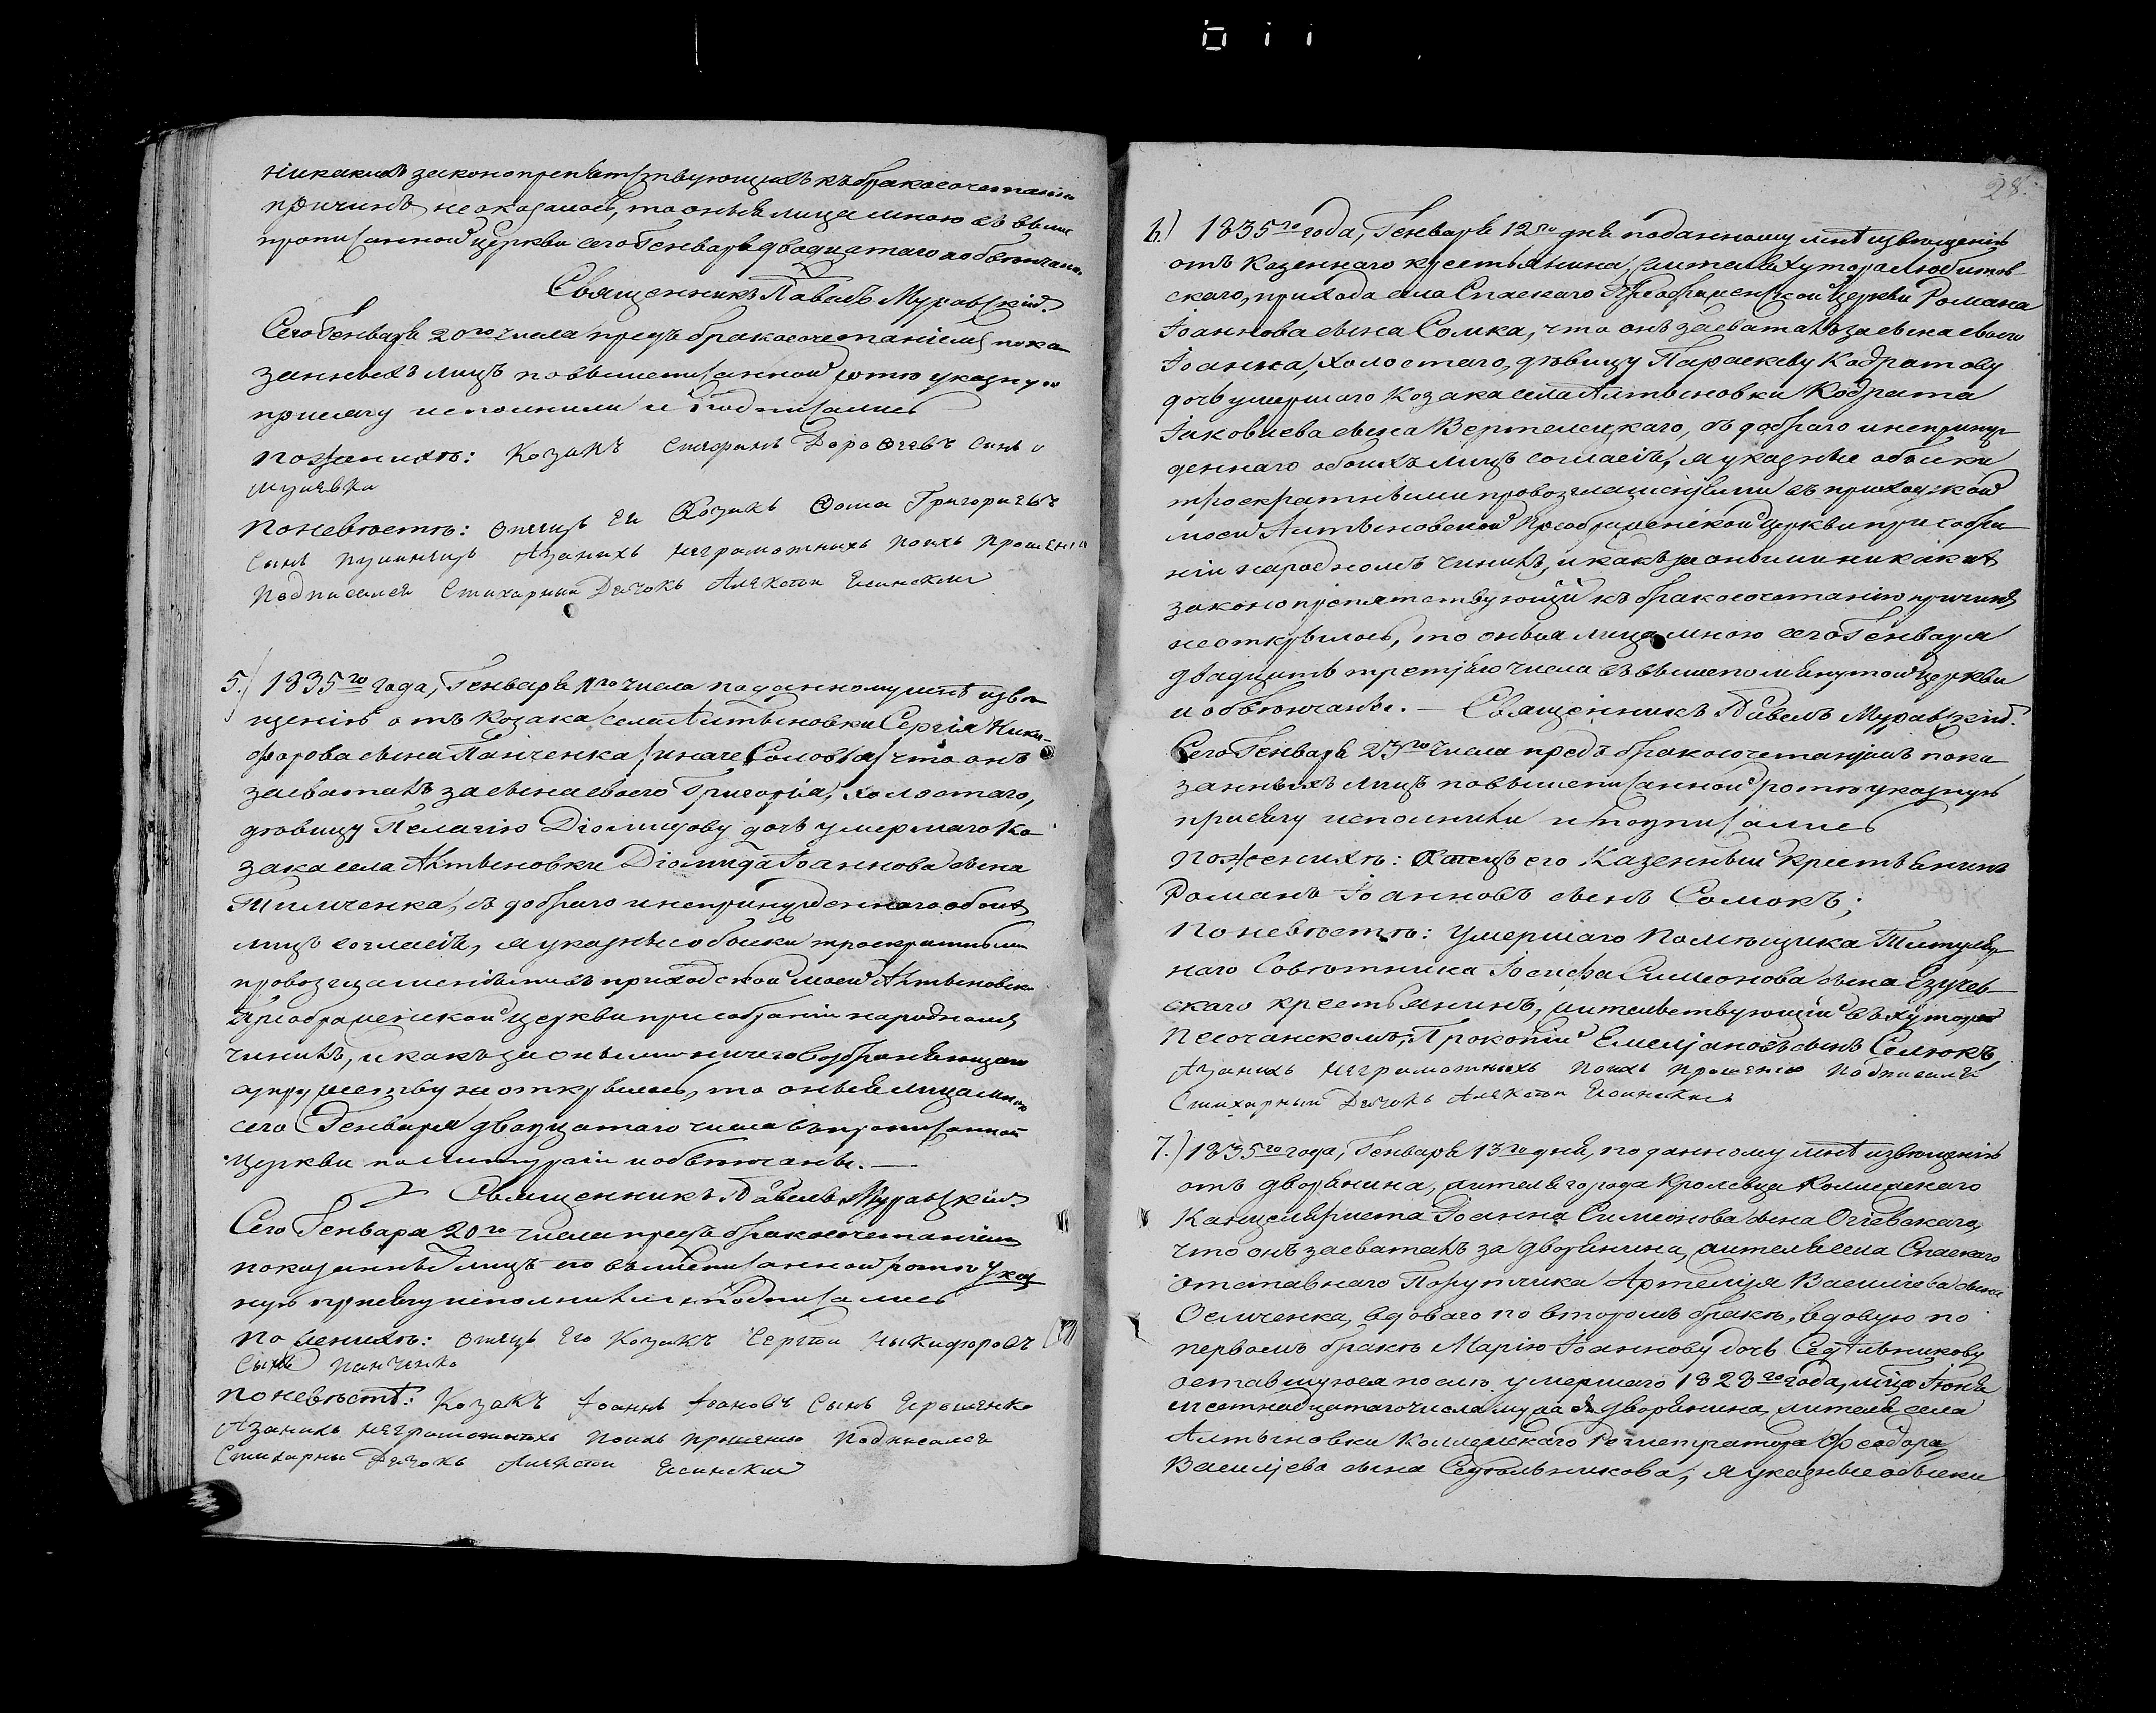 никакихъ законопрепятствующихъ къ бракосочетанію
причинъ не оказалось, то оныя лица мною въ выше
прописанной церкви сего Генваря двадцатаго и обвенчаны.
Священникъ Павелъ Муравскій.
Сего Генваря 20го числа предъ бракосочетаніемъ пока
занныхъ лицъ по вышеписанной указную
присягу исполнили и подписались
По женихѣ: Козакъ Дорофеевъ синъ

По невѣсте: отецъ ея Козакъ Фома Григориевъ
Сынъ Азанихъ неграмотныхъ поихъ прошенію
Подписался Стихарный Дячокъ Алексѣй Елинский
5.) 1835го года, Генваря числа поданному мнѣ извѣ
щенію отъ Козака села Алтыновки Сергія Ники-
форова сына Панченка /иначе Соловья/ что онъ
засваталъ за сына своего Григорія, холостаго,
девицу Пелагію Діомидову дочь умершаго Ко
зака села Алтыновки Діомида Іоаннова сына
съ добраго и непринужденнаго обоихъ
лицъ согласія, и указные обыски троекратными
провозглашеніями въ приходской моей Алтыновской
Преображенской церкви при собраніи народномъ
чинилъ, и какъ за оными ничего возбраняющаго
супружеству не открылось, то оныя лица мною
сего Генваря двадцатаго числа въ прописанной
Церкви по литургіи и обвенчаны.—
Священникъ Павелъ Муравскій.
Сего Генваря 20го числа предъ бракосочетаніемъ
показанныхъ лицъ по вышеписанной указ
ную присягу исполнили и подписались
По женихѣ: отецъ его Козакъ Сергѣй Ныкифоровъ
Сынъ Панченко
По невѣстѣ: Козакъ Іоаннъ Іоановъ Сынъ
Азанихъ неграмотныхъ поихъ прошению Подписался
Стихарны Дячокъ Алексѣй Елинский
28.
6.) 1835го года, Генваря 12го дня поданному мнѣ извѣщенію
отъ Казеннаго крестьянина, жителя хутора Любитов-
скаго, прихода села Спаскаго Преображенской церкви Романа
Іоаннова сына Сомка, что онъ засваталъ за сына своего
Іоанна, холостаго, дѣвицу Параскеву Кодратову
дочь умершаго Козака села Алтыновки Кодрата
Іаковлева сына Вертелецкаго, съ добраго и непринуж-
деннаго обоихъ лицъ согласія, и указные обыски
троекратными провозглашеніями въ приходской
моей Алтыновской Преображенской церкви при собра-
ніи народномъ чинилъ, и какъ за оными никакихъ
законопрепятствующихъ къ бракосочетанію причинъ
не открылось, то оныя лица мною сего Генваря
двадцать третьяго числа въ вышепомянутой церкви
и обвѣнчаны.— Священникъ Павелъ Муравскій.
Сего Генваря 23го числа предъ бракосочетаніемъ пока
занныхъ лицъ по вышеписанной указную
присягу исполнили и подписались
По женихѣ: Отецъ его Казенный Крестьянинъ
Романъ Іоанновъ сынъ Сомокъ;
По невѣстѣ: умершаго помѣщика Титуляр-
наго Совѣтника Іосифа Симеонова сына
скаго крестьянинъ, жительствующій въ хуторѣ
Песочанскомъ, Прокопій Емеліановъ сынъ Селюкъ,
Азанихъ неграмотныхъ поихъ прошению Подписался
Стихарный Дячокъ Алексѣй Елинский
7.) 1835го года, Генваря 13го дня, поданному мнѣ извѣщенію
отъ дворянина, жителя города Кролевца Коллежскаго
Канцеляриста Іоанна Симеонова сына Огіевскаго,
что онъ засваталъ за дворянина, жителя села Спаскаго
отставнаго Порутчика Артемія Васильева сына
Осмченка, вдоваго по второмъ бракѣ, вдовую по
первомъ бракѣ Марію Іоаннову дочь Седльникову
оставшуюся послѣ умершаго 1828го года, мца Іюня
числа мужа ея дворянина, жителя села
Алтыновки Коллежскаго Регистратора Феодора
Васильева сына Седольникова, и указные обыски